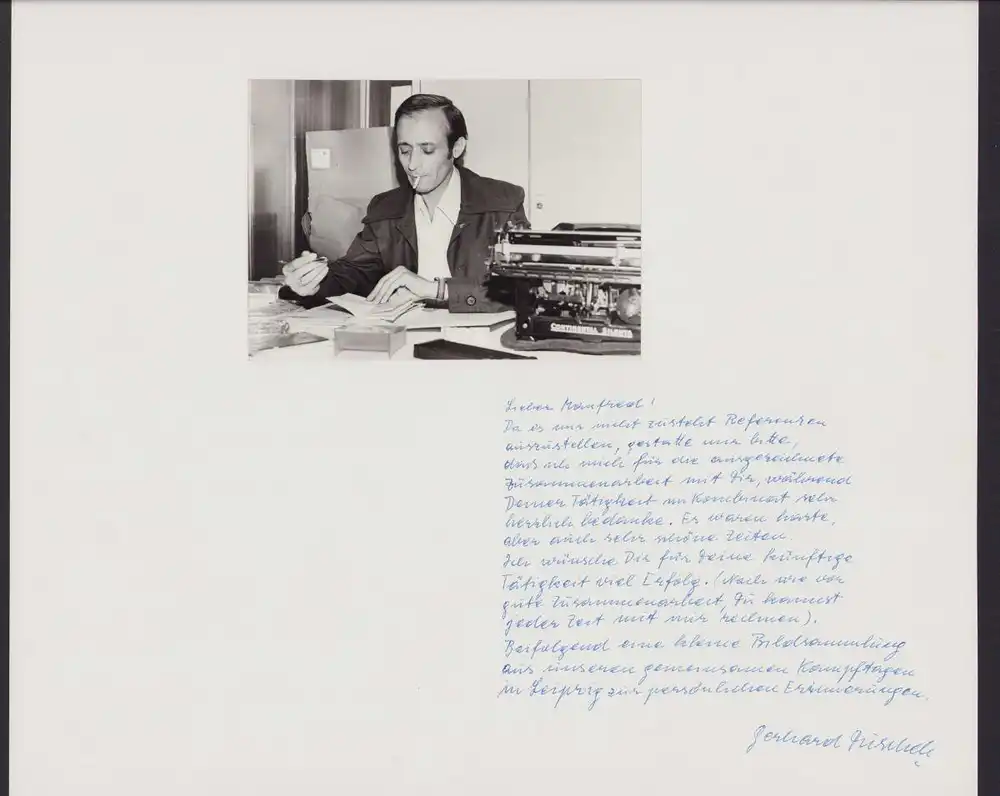 CONTINENTAL SILENTA
Lieber Manfred!
Da es mir nicht zusteht Referenzen
auszustellen, gestatte mir bitte,
daß ich mich für die ausgezeichnete
Zusammenarbeit mit Dir, während
Deiner Tätigkeit im Kombinat sehr
herzlich bedanke. Es waren harte,
aber auch sehr schöne Zeiten.
Ich wünsche Dir für Deine künftige
Tätigkeit viel Erfolg. (Nach wie vor
gute Zusammenarbeit, Du kannst
jeder Zeit mit mir rechnen).
Beifolgend eine kleine Bildsammlung
aus unseren gemeinsamen Kampftagen
in Leipzig zur persönlichen Erinnerungen.
Gerhard